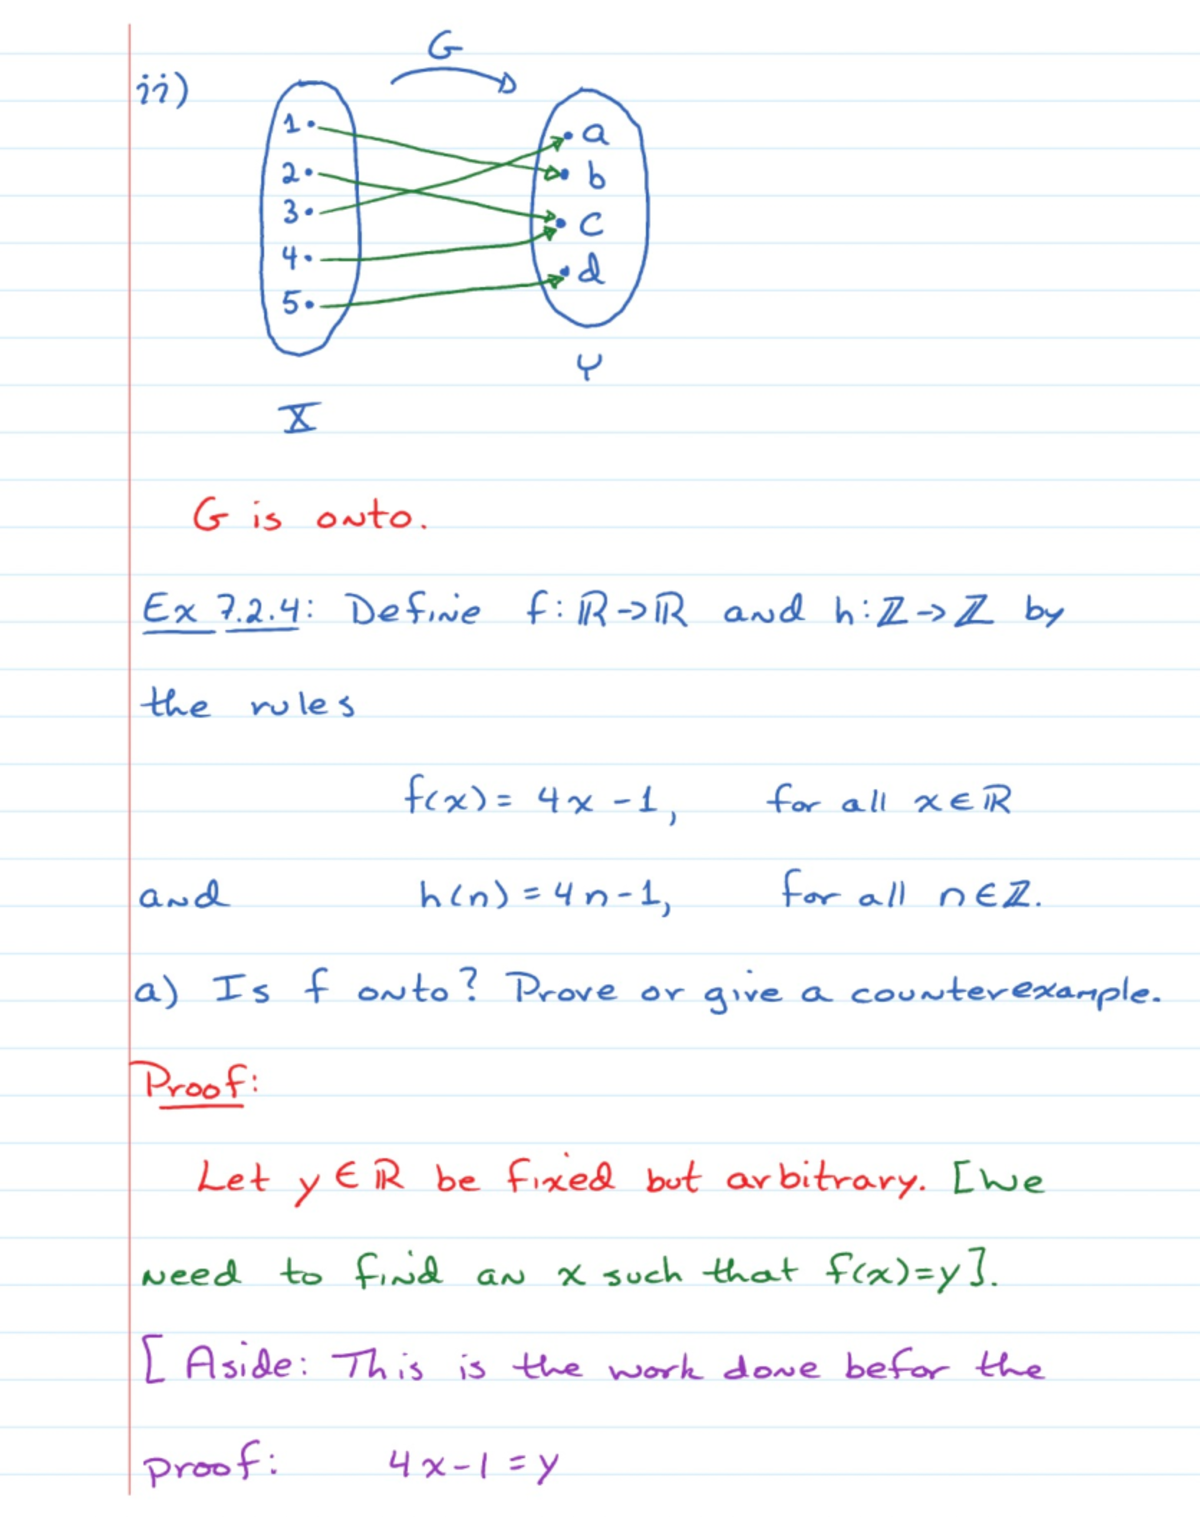 G
ii)
1
a
2
b
3
c
4
d
5
Y
X
G is onto.
Ex 7.2.4: Define f: ℝ→ℝ and h: ℤ→ℤ by
the rules
f(x) = 4x - 1, for all x ∈ ℝ
and h(n) = 4n - 1, for all n ∈ ℤ.
a) Is f onto? Prove or give a counterexample.
Proof:
Let y ∈ ℝ be fixed but arbitrary. [We
need to find an x such that f(x)=y].
[Aside: This is the work done befor the
proof: 4x - 1 = y